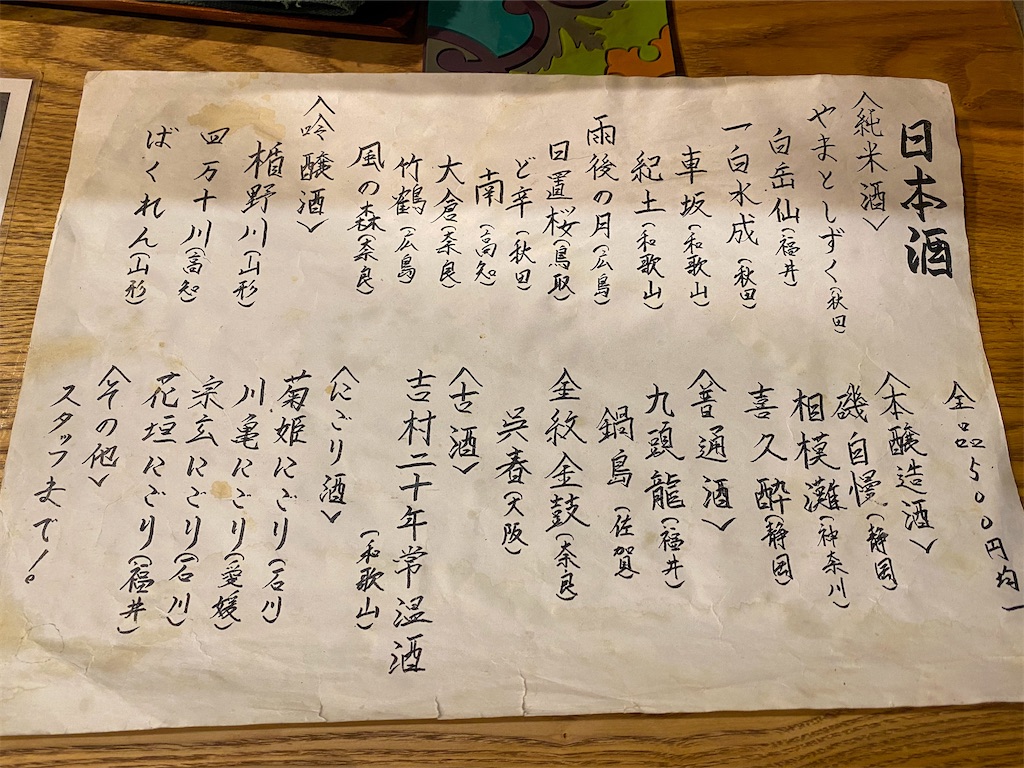 日本酒
〈純米酒〉
やまとしずく(秋田)
白岳仙(福井)
一白水成(秋田)
車坂(和歌山)
紀土(和歌山)
雨後の月(広島)
日置桜(鳥取)
ど辛(秋田)
南(高知)
大倉(奈良)
竹鶴(広島)
風の森(奈良)
〈吟醸酒〉
楯野川(山形)
四万十川(高知)
ばくれん(山形)
全品500円均一
〈本醸造酒〉
磯自慢(静岡)
相模灘(神奈川)
喜久酔(静岡)
〈普通酒〉
九頭龍(福井)
鍋島(佐賀)
金紋金鼓(奈良)
呉春(大阪)
〈古酒〉
吉村二十年常温酒
(和歌山)
〈にごり酒〉
菊姫にごり(石川)
川亀にごり(愛媛)
宗玄にごり(石川)
花垣にごり(福井)
〈その他〉
スタッフまで!。